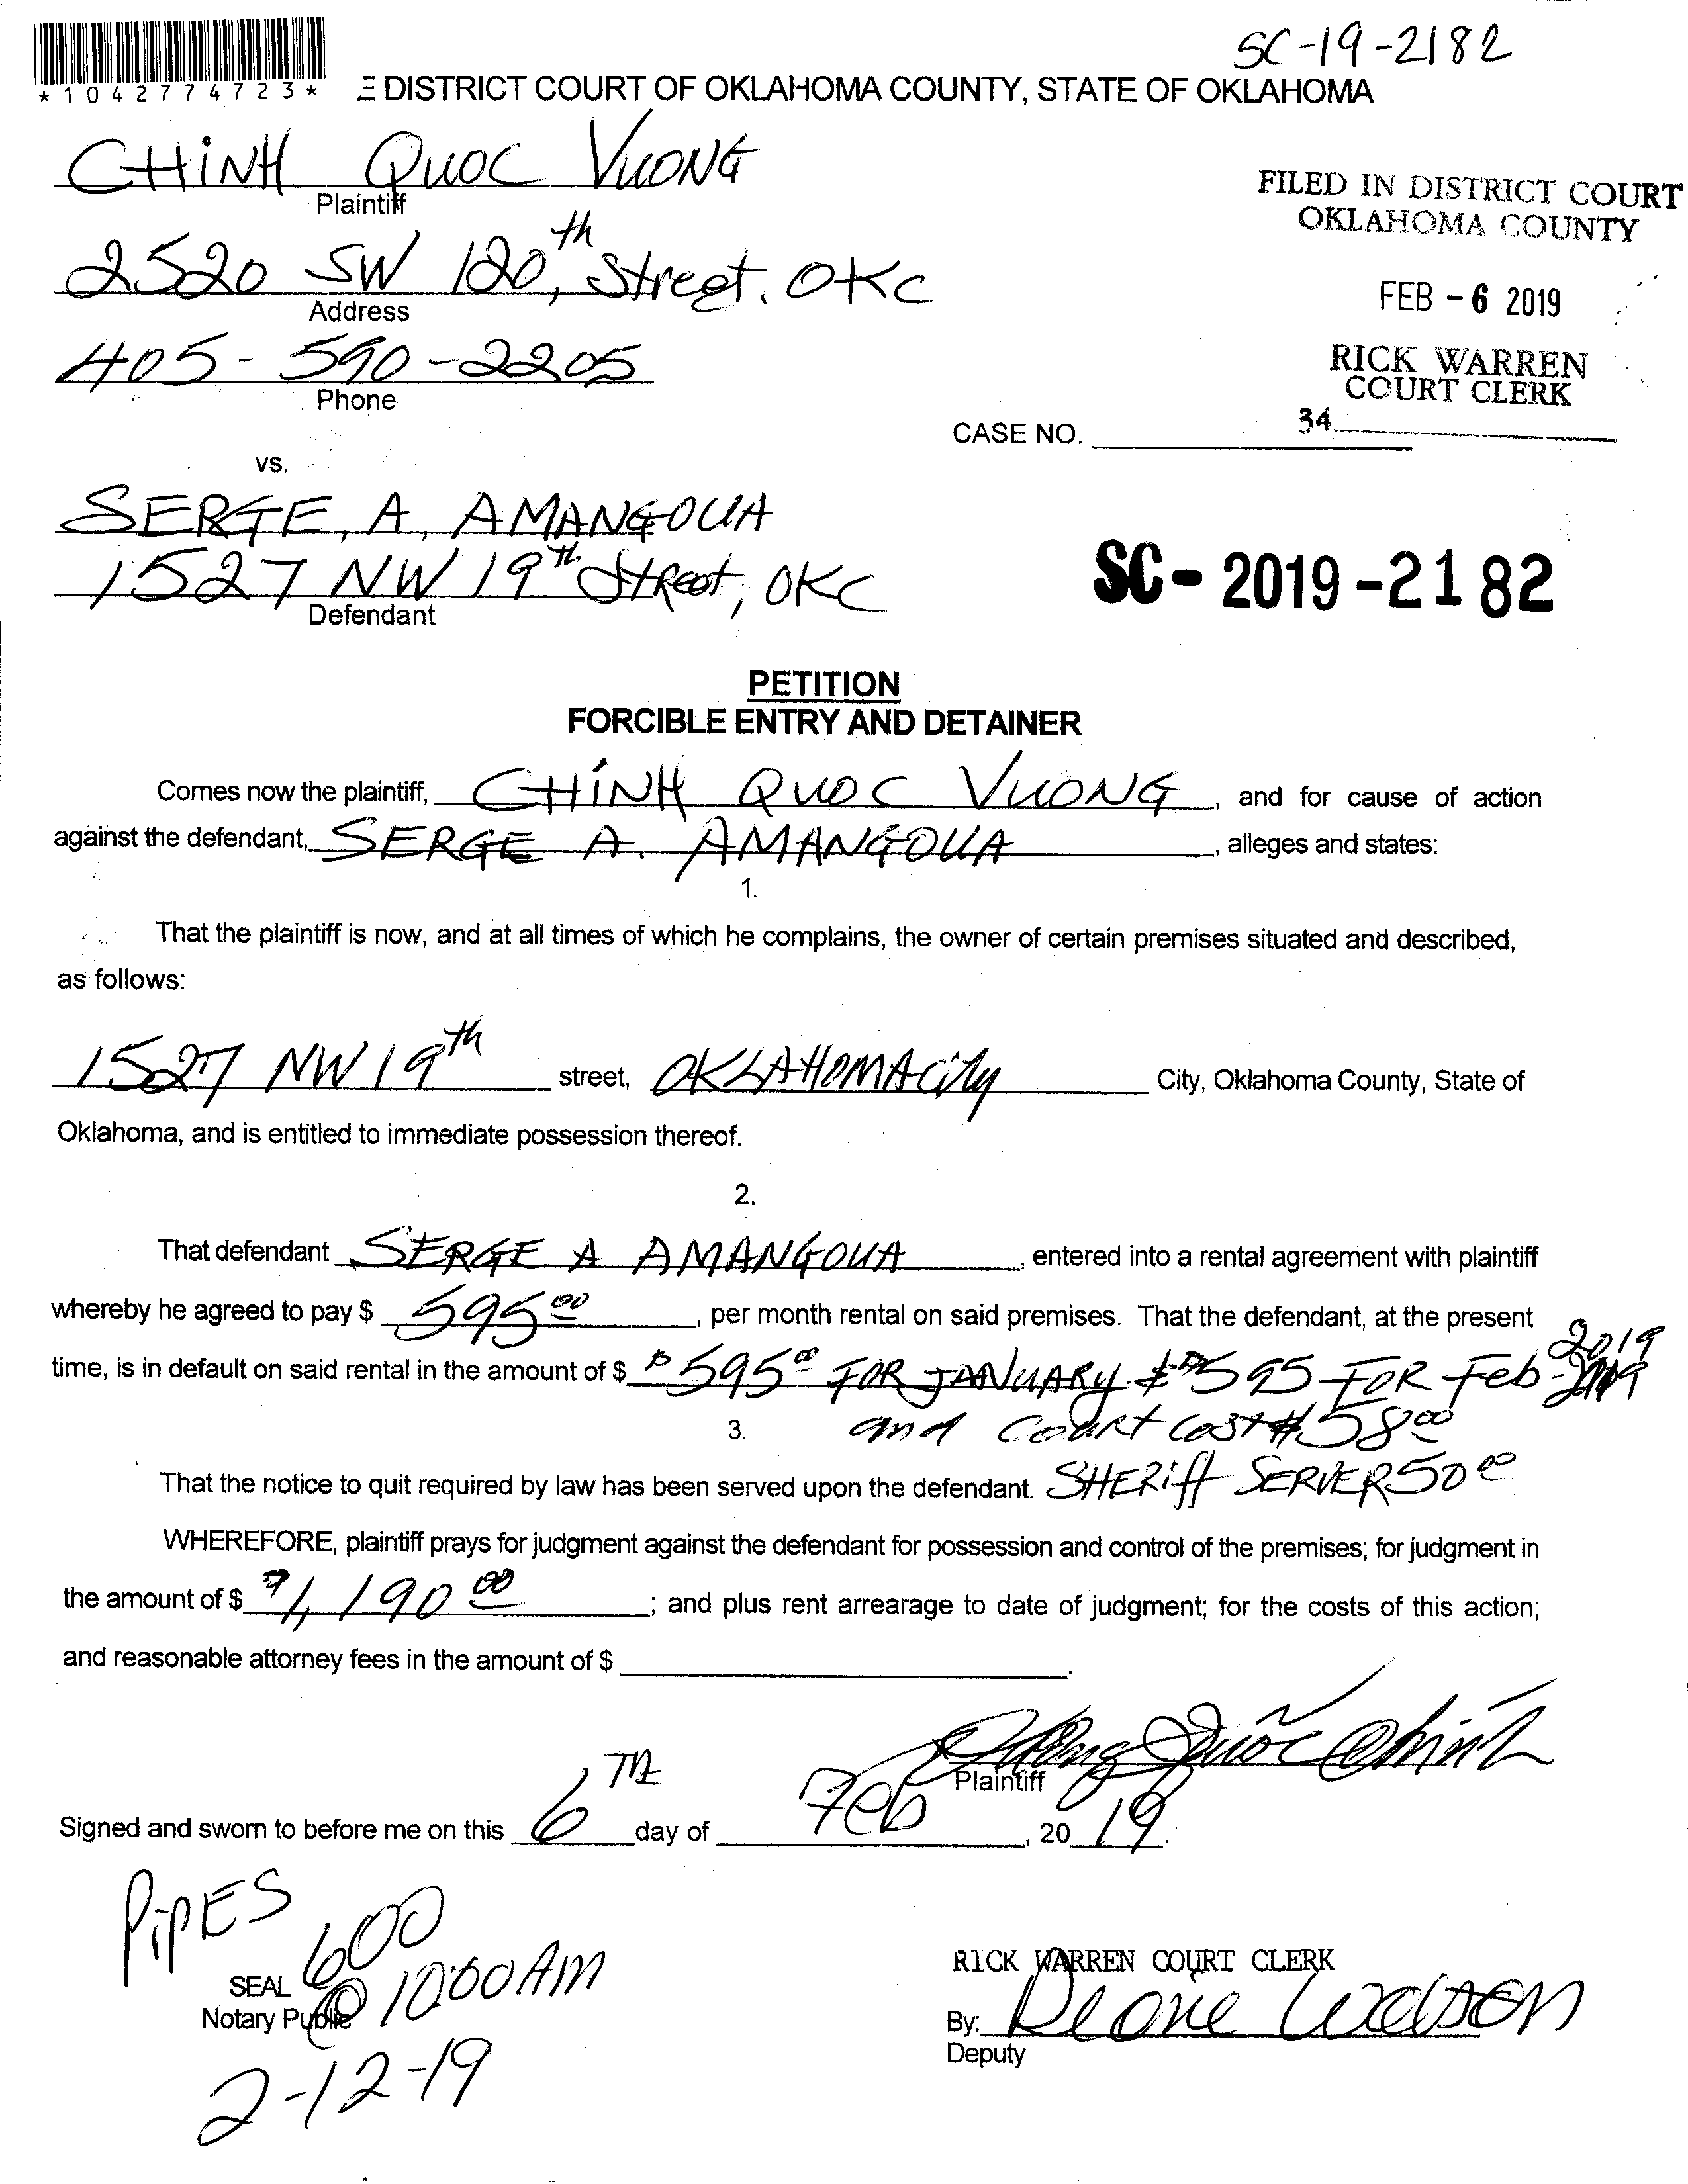 SC-19-2182
*1042774723*
E DISTRICT COURT OF OKLAHOMA COUNTY, STATE OF OKLAHOMA
CHINH QUOC VUONG
Plaintiff
FILED IN DISTRICT COURT
OKLAHOMA COUNTY
2520 SW 120th, Street. OKC
Address
FEB - 6 2019
405-590-2205
Phone
RICK WARREN
COURT CLERK
34
CASE NO.
vs.
SERGE, A, AMANGOUA
1527 NW 19th Street, OKC
Defendant
SC-2019-2182
PETITION
FORCIBLE ENTRY AND DETAINER
Comes now the plaintiff, CHINH QUOC VUONG, and for cause of action
against the defendant, SERGE A. AMANGOUA, alleges and states:
1.
That the plaintiff is now, and at all times of which he complains, the owner of certain premises situated and described,
as follows:
1527 NW 19th street, OKLAHOMA City City, Oklahoma County, State of
Oklahoma, and is entitled to immediate possession thereof.
2.
That defendant SERGE A AMANGOUA, entered into a rental agreement with plaintiff
whereby he agreed to pay $ 595 00, per month rental on said premises. That the defendant, at the present
2019
time, is in default on said rental in the amount of $ $595 00 FOR JANUARY $595 FOR Feb-2019
3. and Court Cost $58 00
That the notice to quit required by law has been served upon the defendant. SHERiff SERVER 50 00
WHEREFORE, plaintiff prays for judgment against the defendant for possession and control of the premises; for judgment in
the amount of $ $1,190 00; and plus rent arrearage to date of judgment; for the costs of this action;
and reasonable attorney fees in the amount of $ .
Vuong Quốc Chinh
Plaintiff
Signed and sworn to before me on this 6TH day of Feb, 2019.
PiPES
600
@ 10:00 AM
SEAL
Notary Public
2-12-19
RICK WARREN COURT CLERK
By:
Deputy